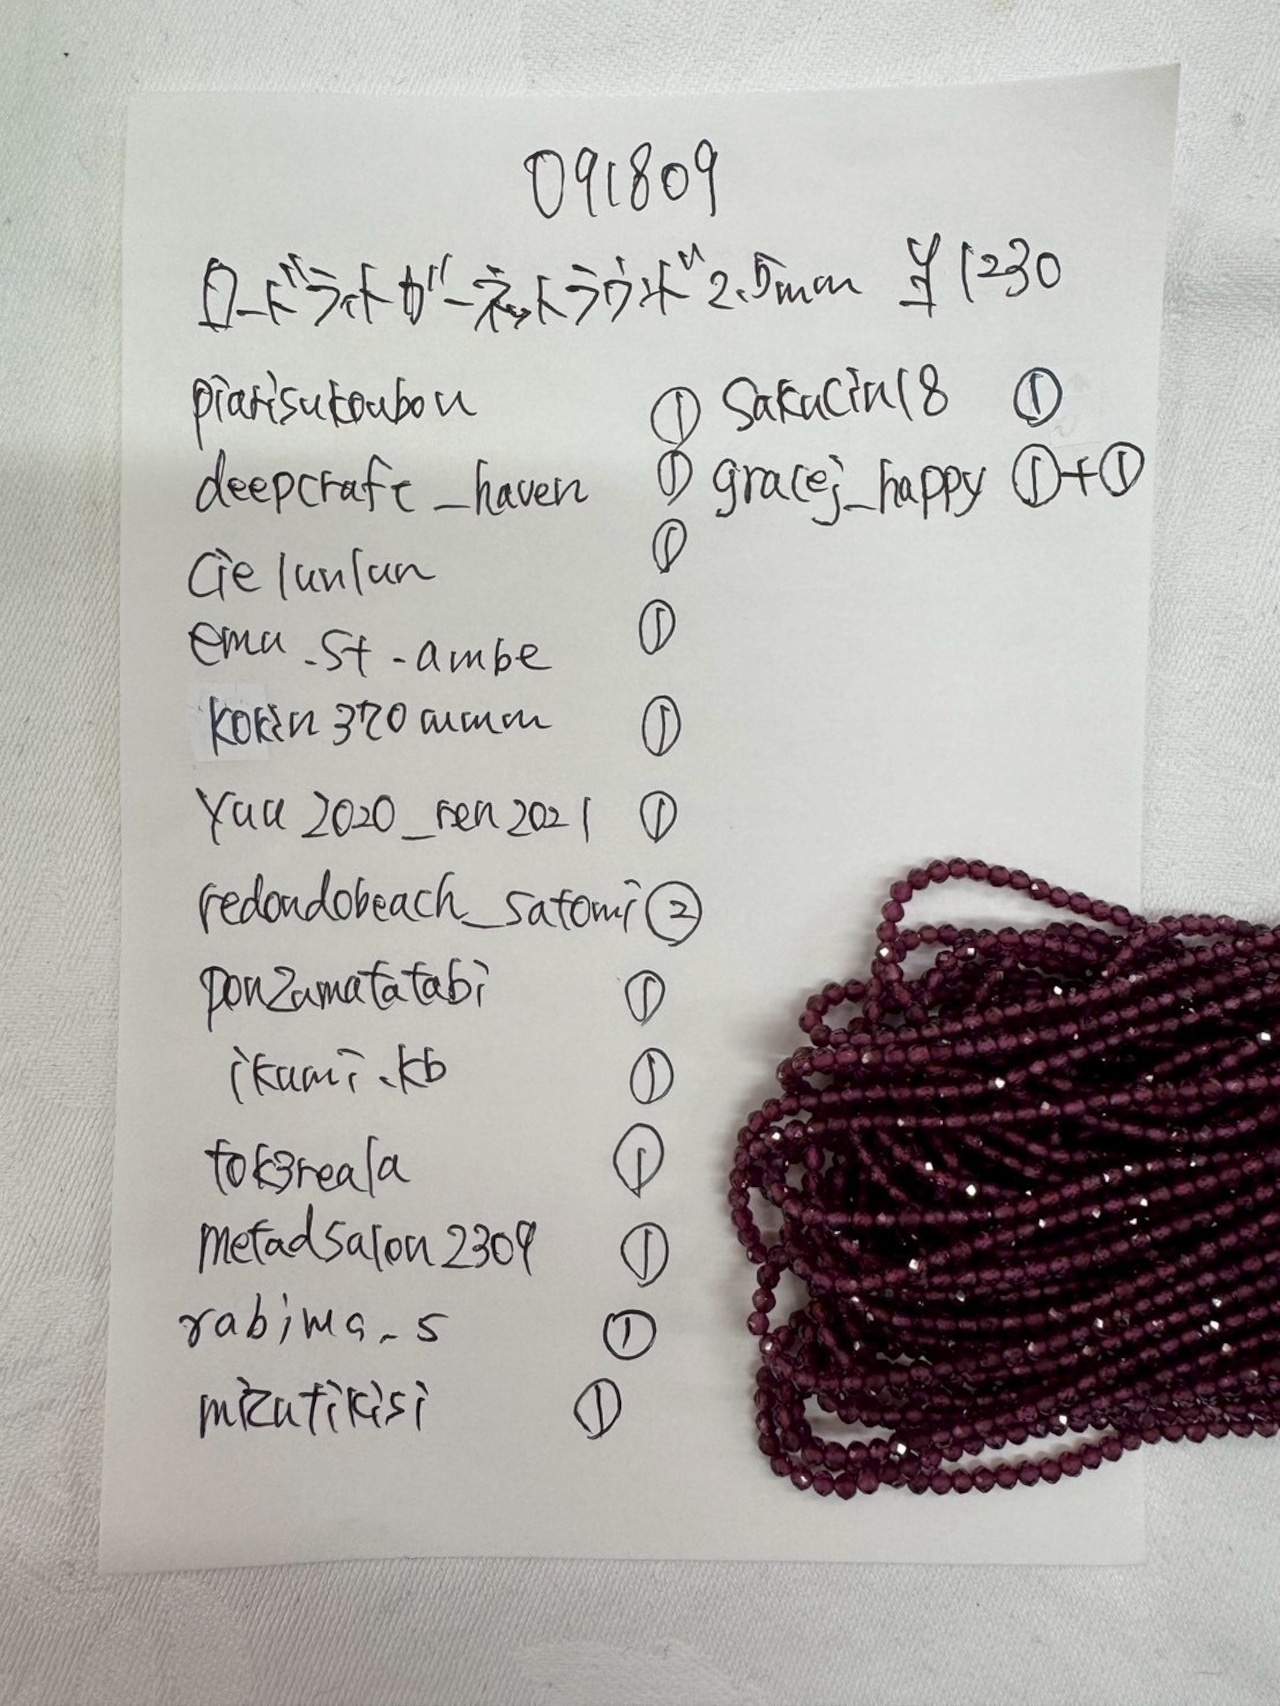 091809
ロードライトガーネットラウンド2.5mm ¥1230
piarisukoubou ① sakucin18 ①
deepcraft_haven ① gracej_happy ①+①
cielunlun ①
emu_st_ambe ①
korin370mmm ①
yuu2020_ren2021 ①
redondobeach_satomi ②
ponzumatatabi ①
ikumi.kb ①
tok3reala ①
metadsalon2309 ①
rabima_s ①
mizutikisi ①